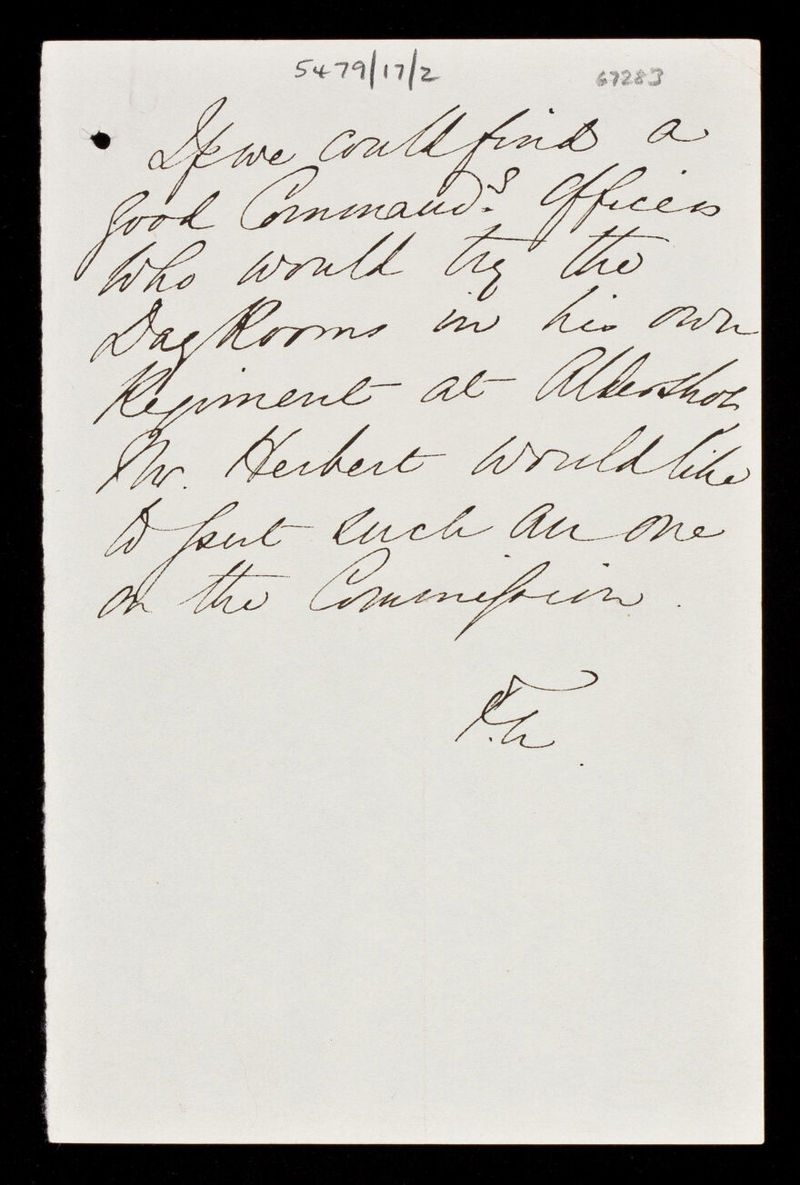 5479/17/2
67283
If we could find a
good Command.g Officer
who would try the
Day Rooms in his own
Regiment at Aldershot,
Mr. Herbert would like
to put such an one
on the Commission.
F.N.